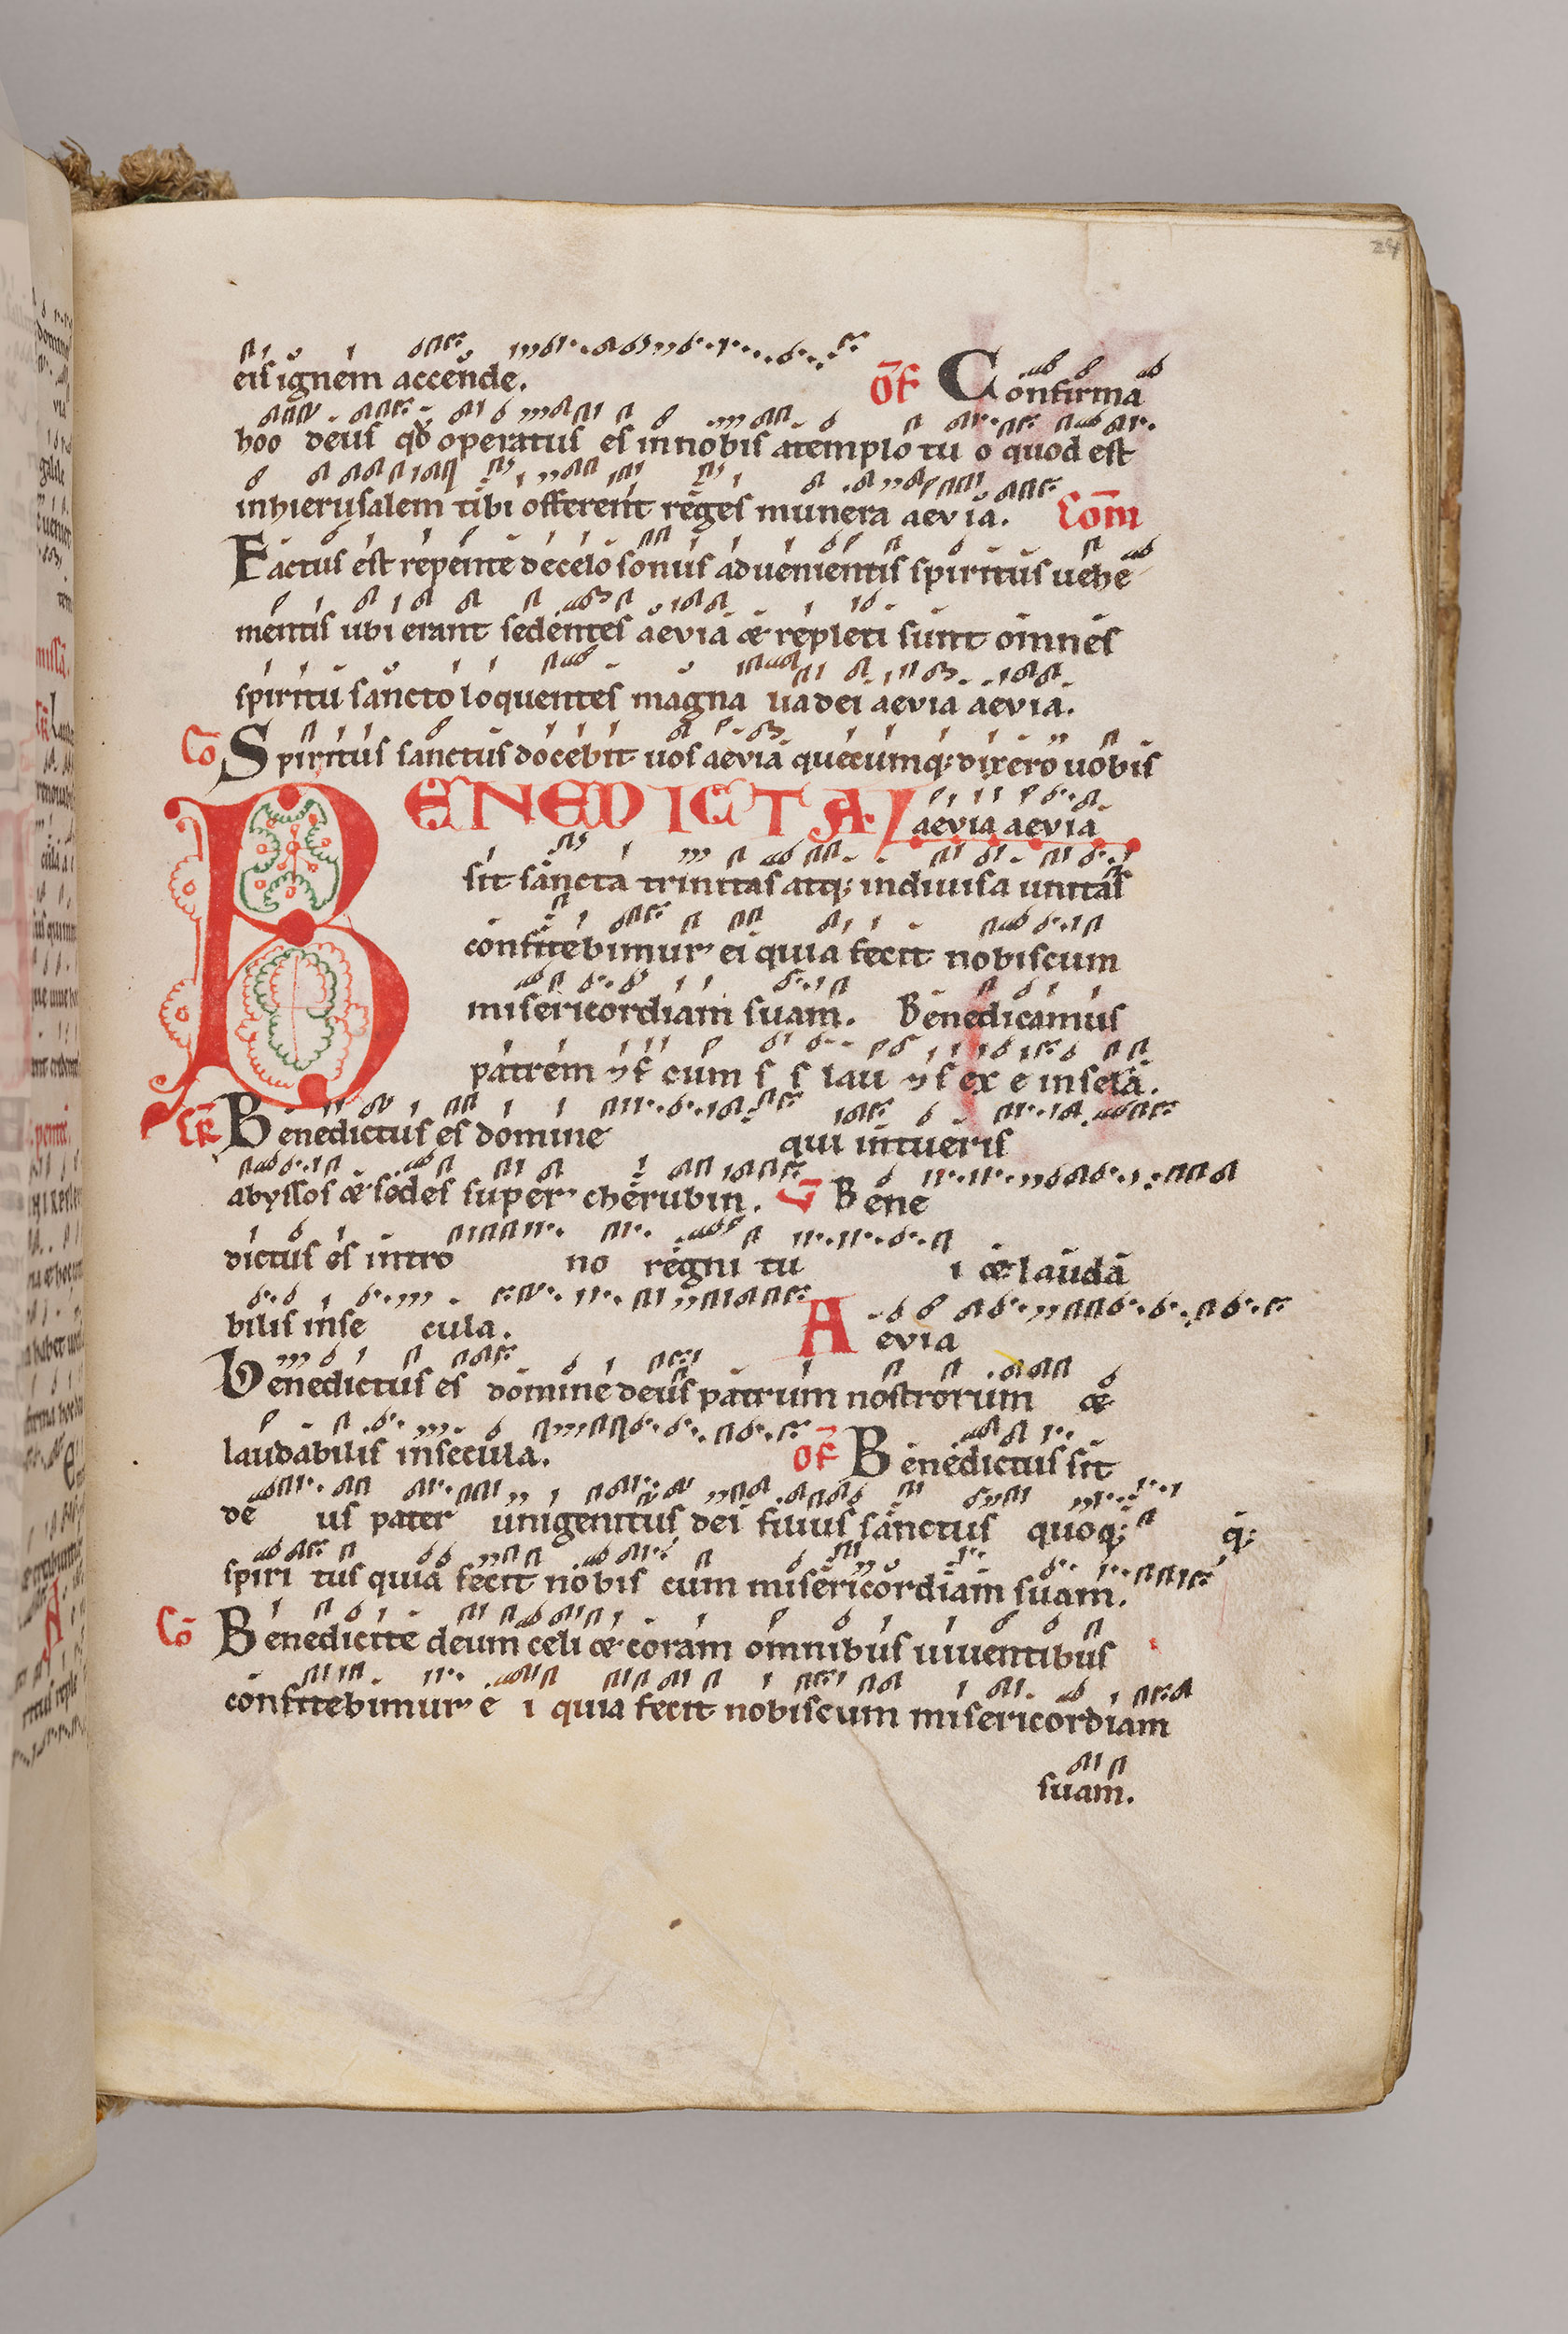 24
eis ignem accende. Of Confirma
hoc deus qd operatus es in nobis a templo tu o quod est
in hierusalem tibi offerent reges munera aevia. Com
Factus est repente de celo sonus advenientis spiritus vehe
mentis ubi erant sedentes aevia & repleti sunt omnes
spiritu sancto loquentes magna lia dei aevia aevia.
Co Spiritus sanctus docebit vos aevia quecumq; dixero vobis
BENEDICTA aevia aevia
sit sancta trinitas atq; indivisa unitas
confitebimur ei quia fecit nobiscum
misericordiam suam. Benedicamus
patrem & f cum s s lau & s ex e in secla.
GR Benedictus es domine qui intueris
abyssos & sedes super cherubin. V Bene
dictus es in tro no regni tu i & lauda
bilis in se cula. A evia
Benedictus es domine deus patrum nostrorum &
laudabilis in secula. Of Benedictus sit
de us pater unigenitus dei filius sanctus quoq; q;
spiri tus quia fecit nobis cum misericordiam suam.
Co Benedicite deum celi & coram omnibus viventibus
confitebimur e i quia fecit nobiscum misericordiam
suam.